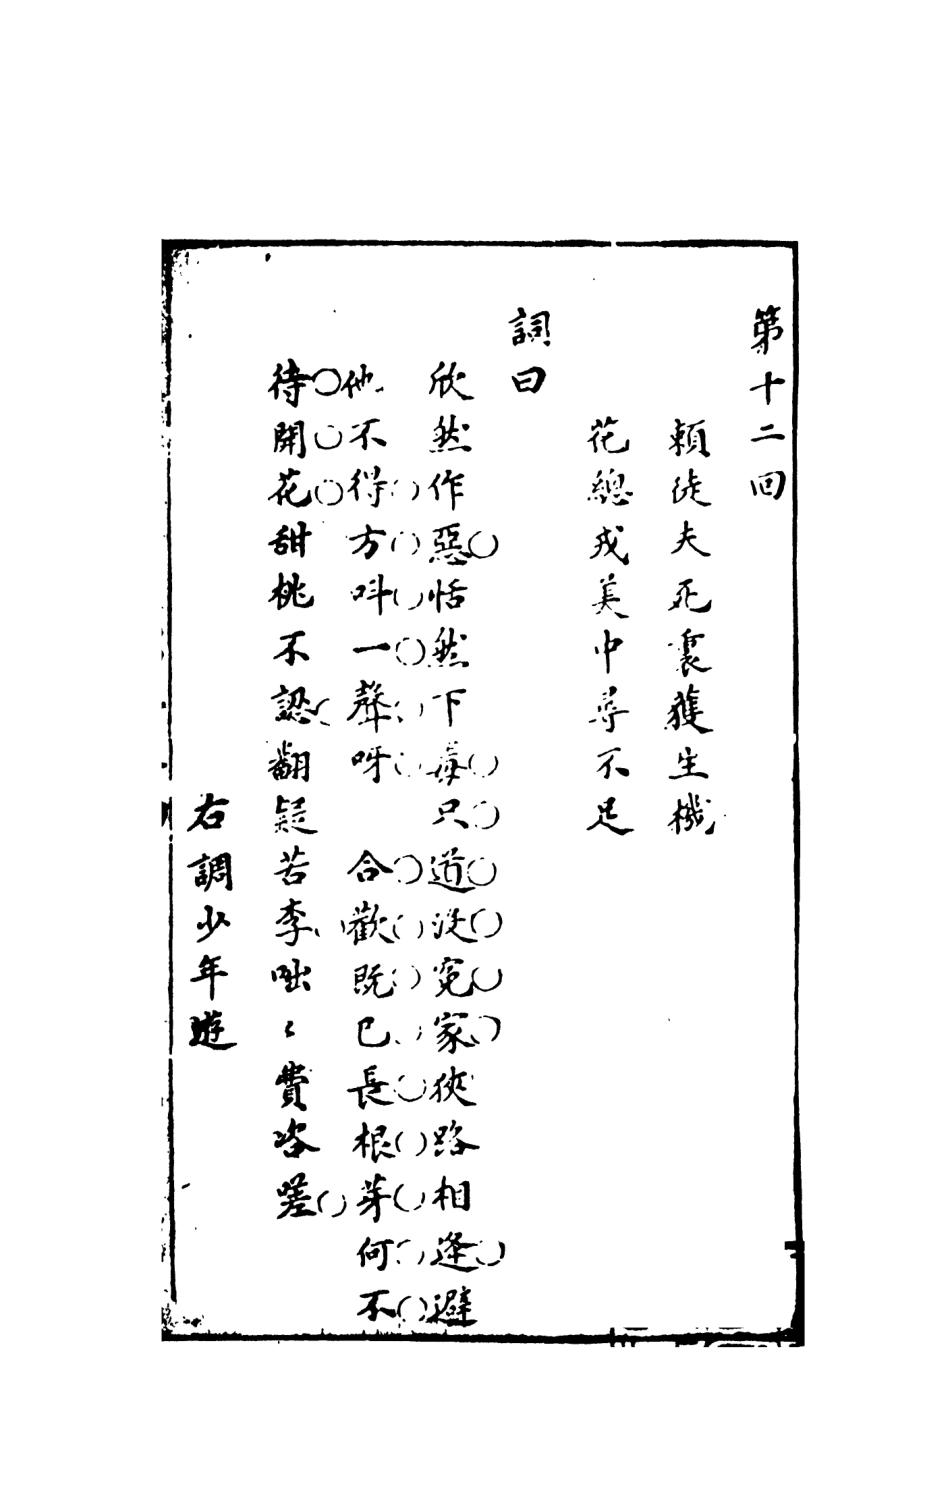 第十二回
賴徒夫死裏獲生機
花總戎美中尋不足
詞曰
欣然作惡恬然下毒只道沒冤家狹路相逢避
他不得方呌一聲呀　合歡既已長根芽何不
待開花甜桃不認翻疑苦李咄〻費咨嗟
右調少年遊